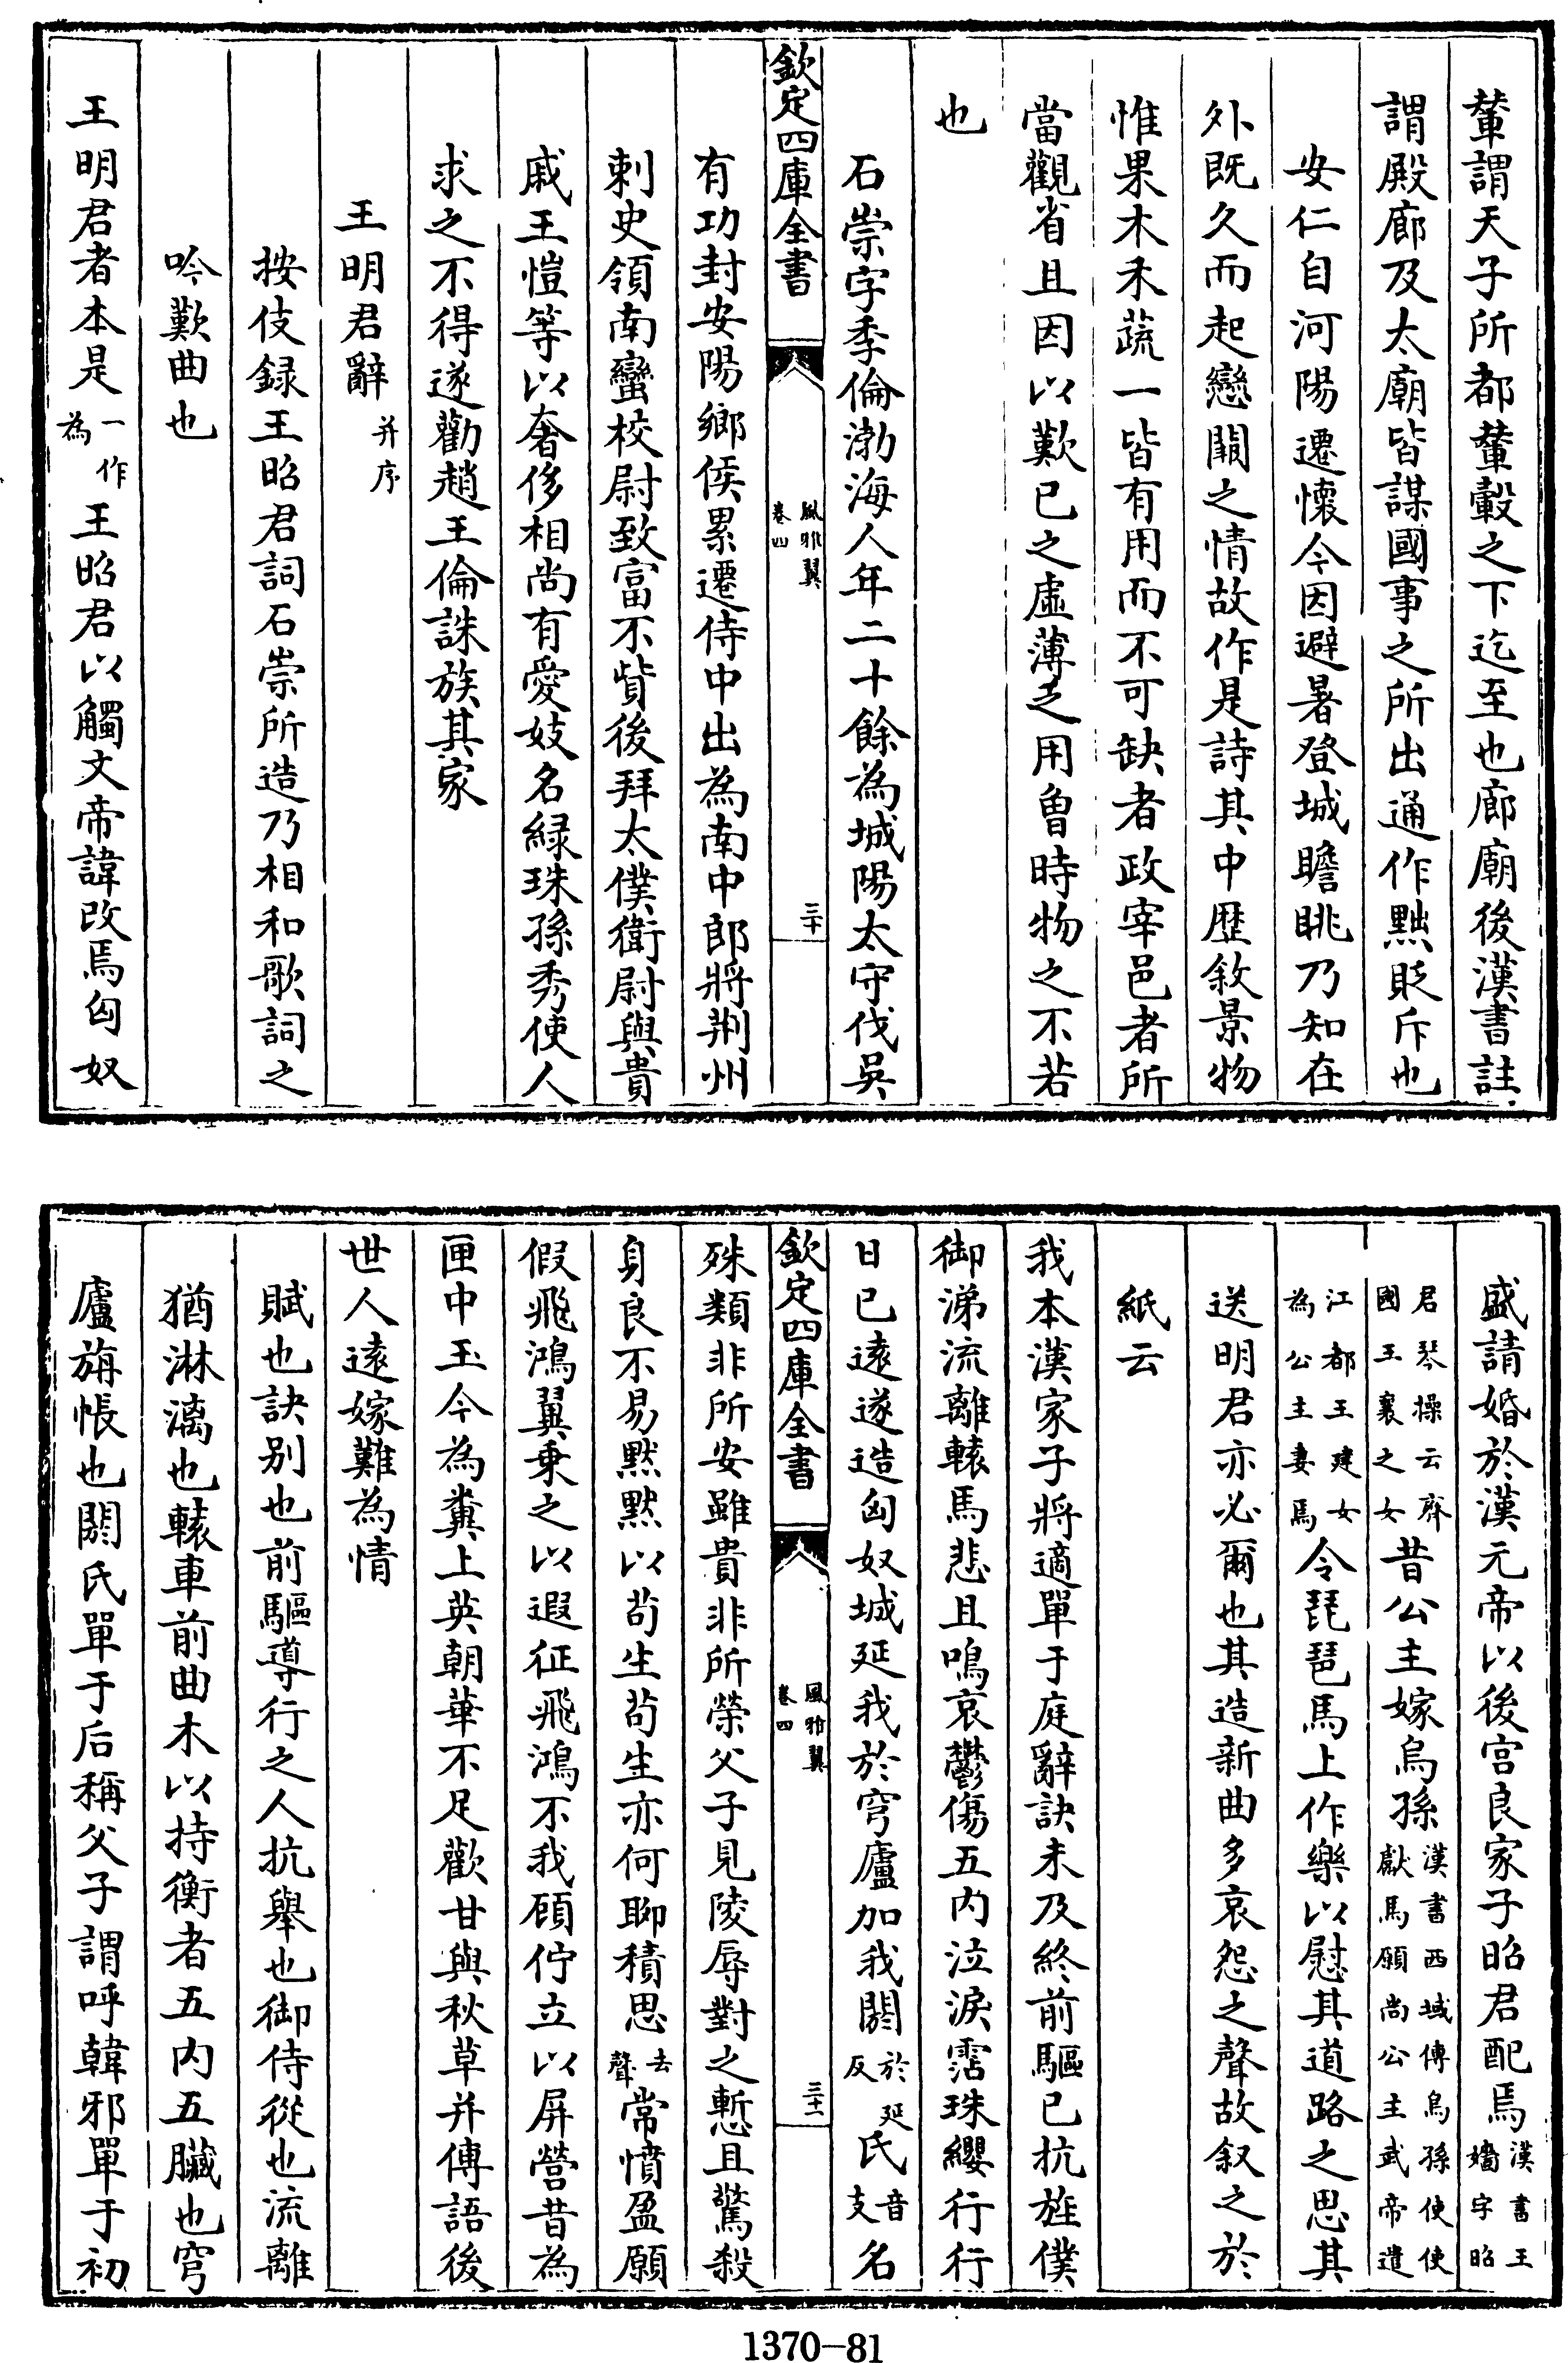 輦謂天子所都輦轂之下迄至也廊廟後漢書註
謂殿廊及太廟皆謀國事之所出通作黜貶斥也
安仁自河陽遷懷今因避暑登城瞻眺乃知在
外既久而起戀闕之情故作是詩其中歴敘景物
惟果木禾蔬一皆有用而不可缺者政宰邑者所
當觀省且因以歎已之虛薄乏用曽時物之不若
也
石崇字季倫渤海人年二十餘為城陽太守伐吳
欽定四庫全書
風雅翼
卷四
三十
有功封安陽鄉侯累遷侍中出為南中郎將荆州
刺史領南蠻校尉致富不貲後拜太僕衛尉與貴
戚王愷等以奢侈相尚有愛妓名緑珠孫秀使人
求之不得遂勸趙王倫誅族其家
王明君辭并序
按伎録王昭君詞石崇所造乃相和歌詞之
吟歎曲也
王明君者本是一作為王昭君以觸文帝諱改焉匈奴
盛請婚於漢元帝以後宫良家子昭君配焉漢書王嬙字昭
君琴操云齊國王襄之女昔公主嫁烏孫漢書西域傳烏孫使使獻馬願尚公主武帝遣
江都王建女為公主妻焉令琵琶馬上作樂以慰其道路之思其
送明君亦必爾也其造新曲多哀怨之聲故叙之於
紙云
我本漢家子將適單于庭辭訣未及終前驅已抗旌僕
御涕流離轅馬悲且鳴哀鬱傷五内泣淚霑珠纓行行
日已遠遂造匈奴城延我於穹廬加我閼於延反氏音支名
欽定四庫全書
風雅翼
卷四
三十一
殊類非所安雖貴非所榮父子見陵辱對之慙且驚殺
身良不易黙黙以苟生苟生亦何聊積思去聲常憤盈願
假飛鴻翼乗之以遐征飛鴻不我顧佇立以屏營昔為
匣中玉今為糞上英朝華不足歡甘與秋草并傳語後
世人遠嫁難為情
賦也訣别也前驅導行之人抗舉也御侍從也流離
猶淋漓也轅車前曲木以持衡者五内五臟也穹
廬旃帳也閼氏單于后稱父子謂呼韓邪單于初
1370-81